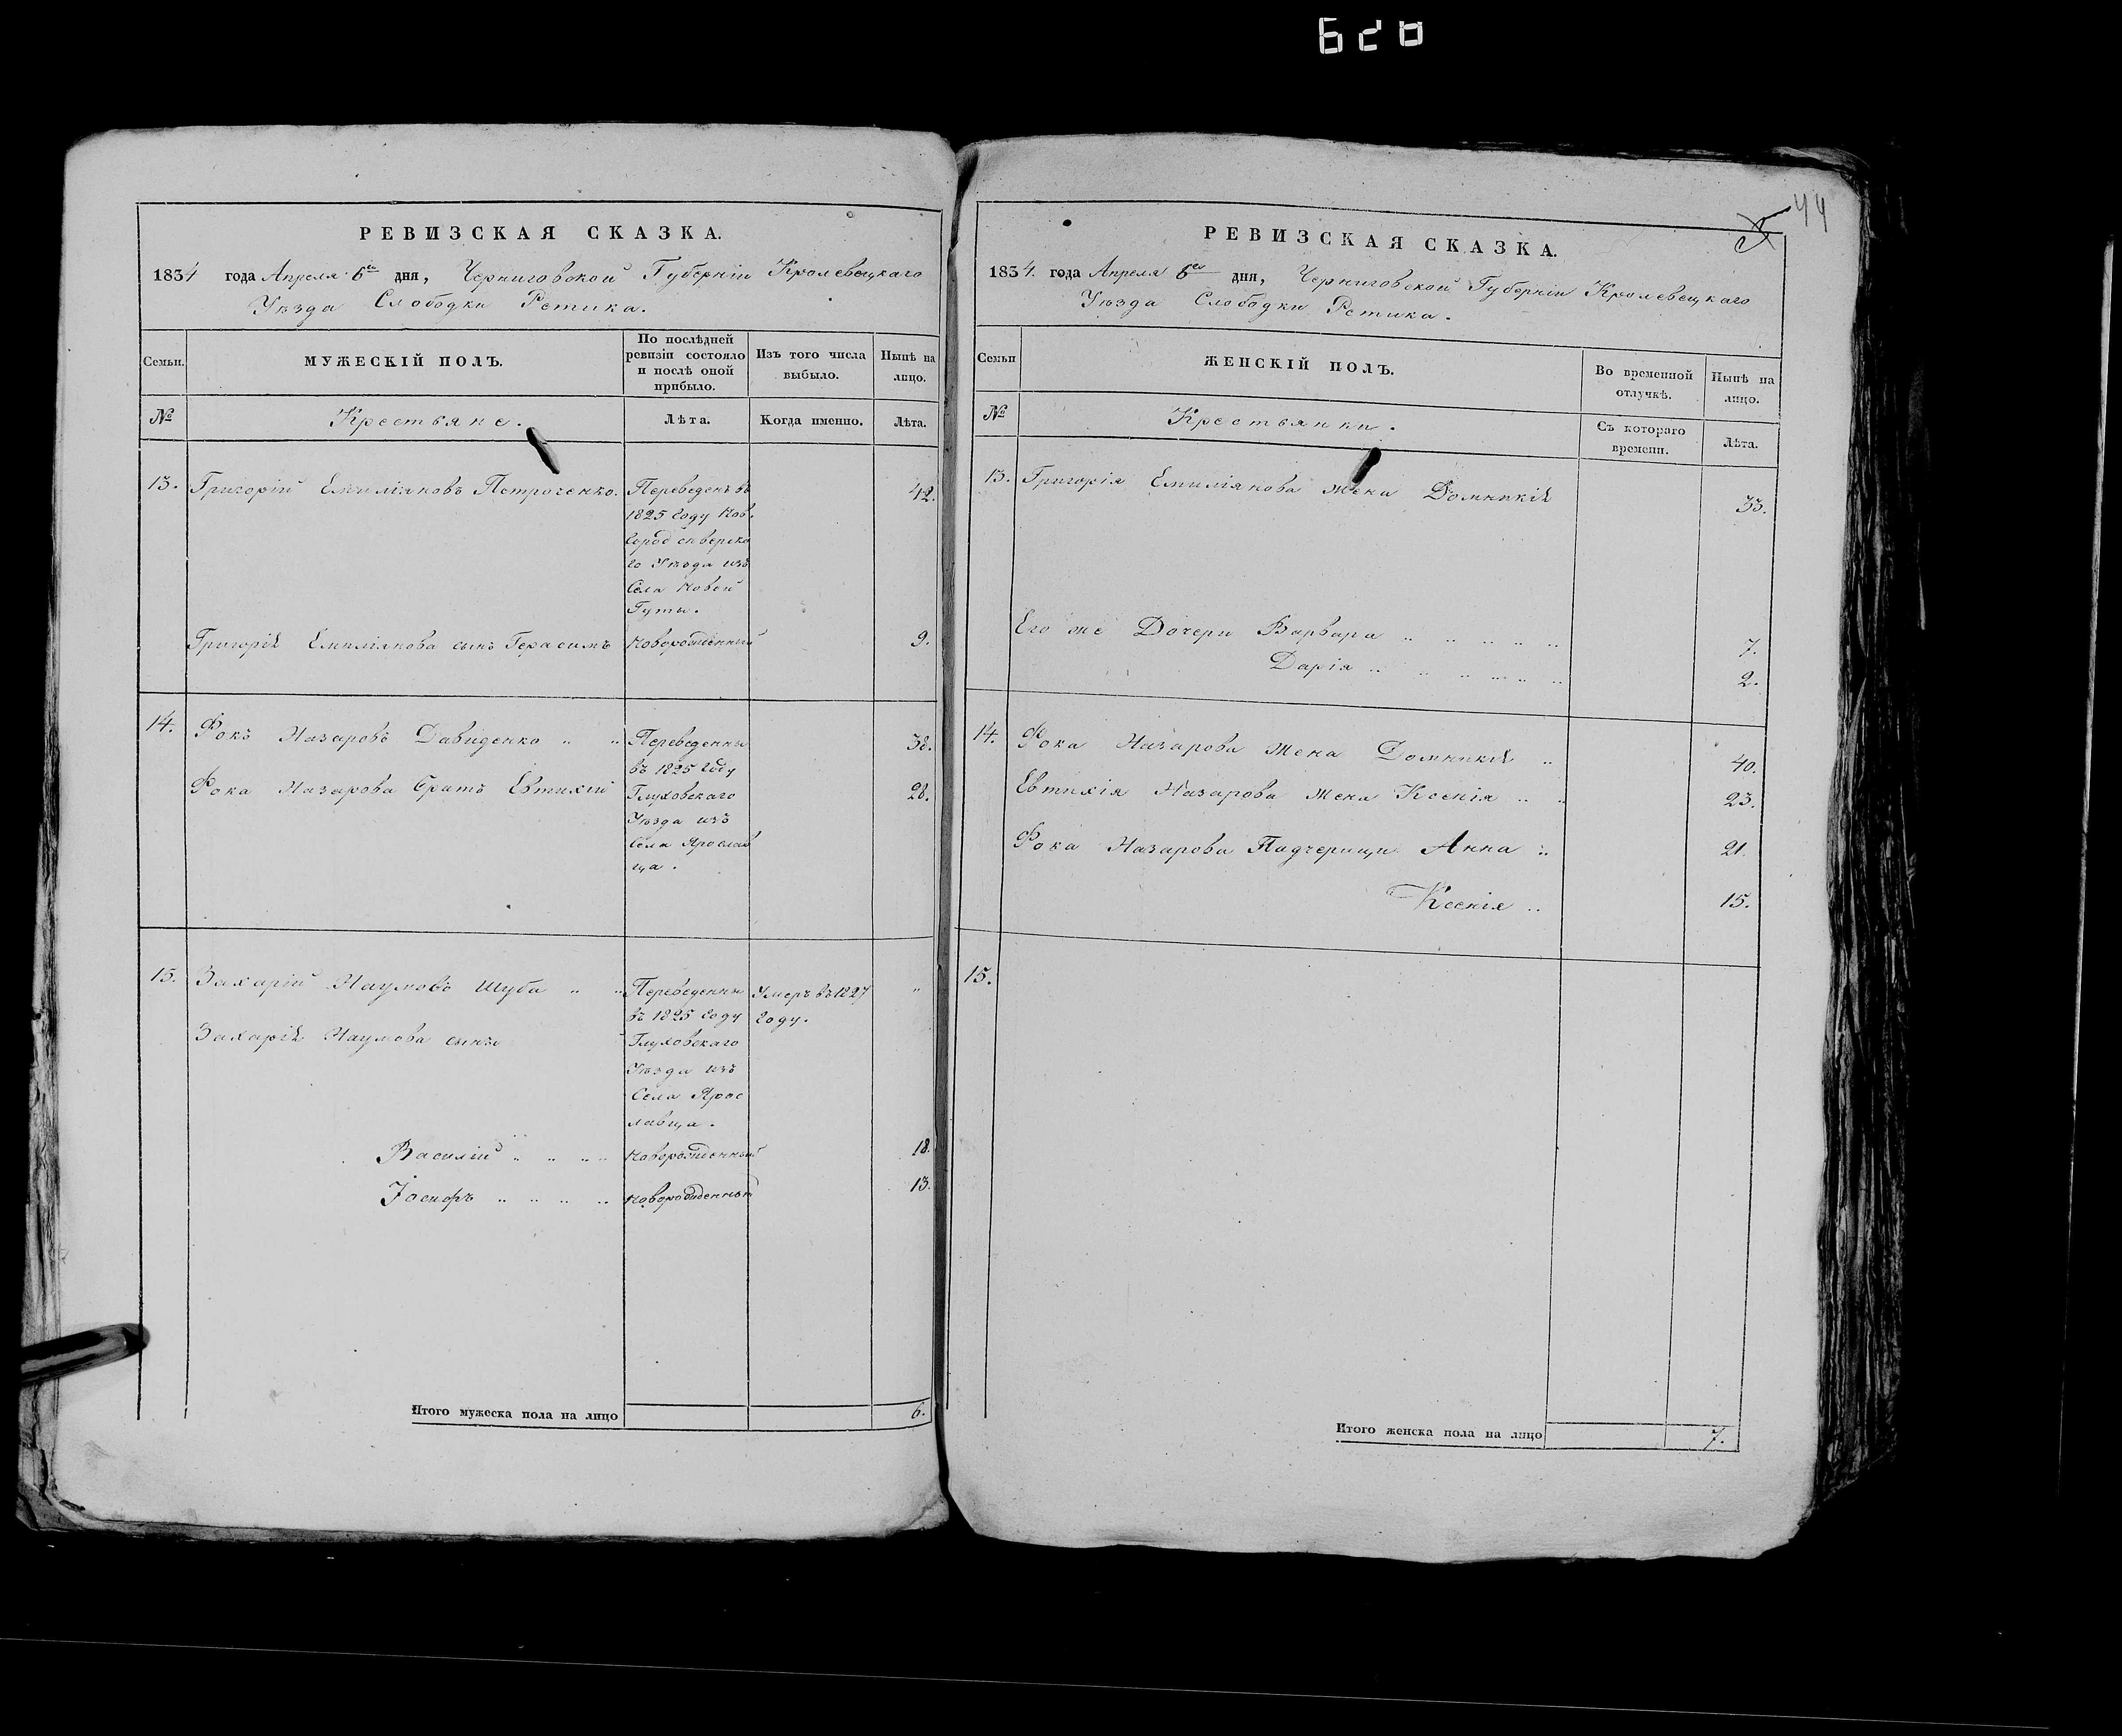 628
РЕВИЗСКАЯ СКАЗКА.
1834 года Апреля 6го дня, Черниговской Губерніи Кролевецкаго
Уѣзда Слободки Ретика.
Семьи.
МУЖЕСКІЙ ПОЛЪ.
По послѣдней
ревизіи состояло
и послѣ оной
прибыло.
Изъ того числа
выбыло.
Нынѣ на
лицо.
№
Крестьяне.
Лѣта.
Когда именно.
Лѣта.
13. Григорій Емиліяновъ Петроченко. Переведенъ въ 42.
1825 году Нов.
город сѣверско
го Уѣзда изъ
Села Новой
Гуты.
Григорія Емиліянова сынъ Герасимъ Новорожденный 9.
14. Фокъ Назаровъ Давиденко " " Переведенны 38.
въ 1825 году
Фока Назарова братъ Евтихій Глуховскаго 28.
Уѣзда изъ
Села Ярослав
ца.
15. Захарій Наумовъ Шуба " " Переведенны Умеръ въ 1827 "
въ 1825 году году.
Захарія Наумова сынъ Глуховскаго
Уѣзда изъ
Села Ярос
лавца.
Василій " " " " Новорожденный 18.
Іосифъ " " " " Новорожденный 13.
Итого мужеска пола на лицо 6.
44
РЕВИЗСКАЯ СКАЗКА.
1834. года Апреля 6го дня, Черниговской Губерніи Кролевецкаго
Уѣзда Слободки Ретика.
Семьи
ЖЕНСКІЙ ПОЛЪ.
Во временной
отлучкѣ.
Нынѣ на
лицо.
№
Крестьянки.
Съ котораго
времени.
Лѣта.
13. Григорія Емиліянова жена Домникія 33.
Его же Дочери Варвара " " " " " 7.
Дарія " " " " " " 2.
14. Фока Назарова Жена Домникія " 40.
Евтихія Назарова Жена Ксенія " " 23.
Фока Назарова Падчерицы Анна " 21.
Ксенія " 15.
15.
Итого женска пола на лицо 7.